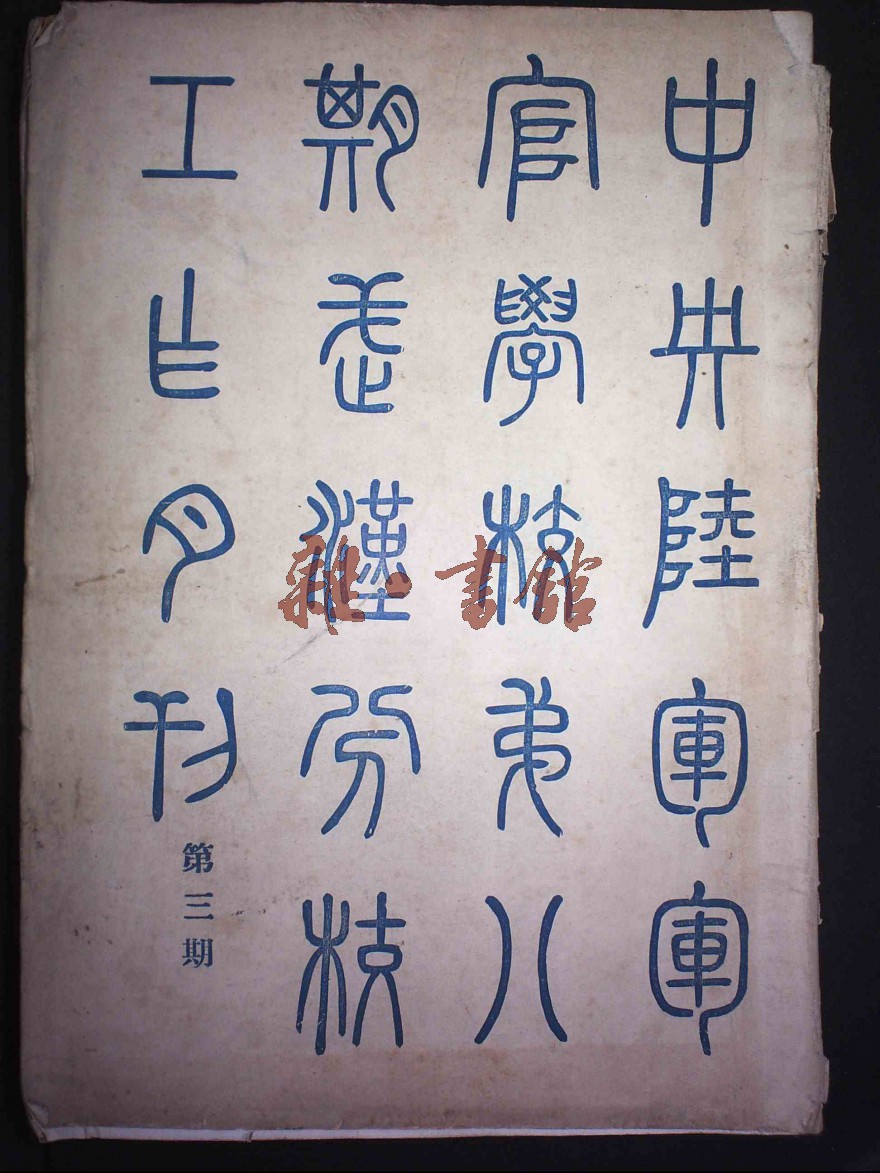 中央陸軍軍
官學校弟八
期武漢分校
工作月刊
第三期
雜·書館